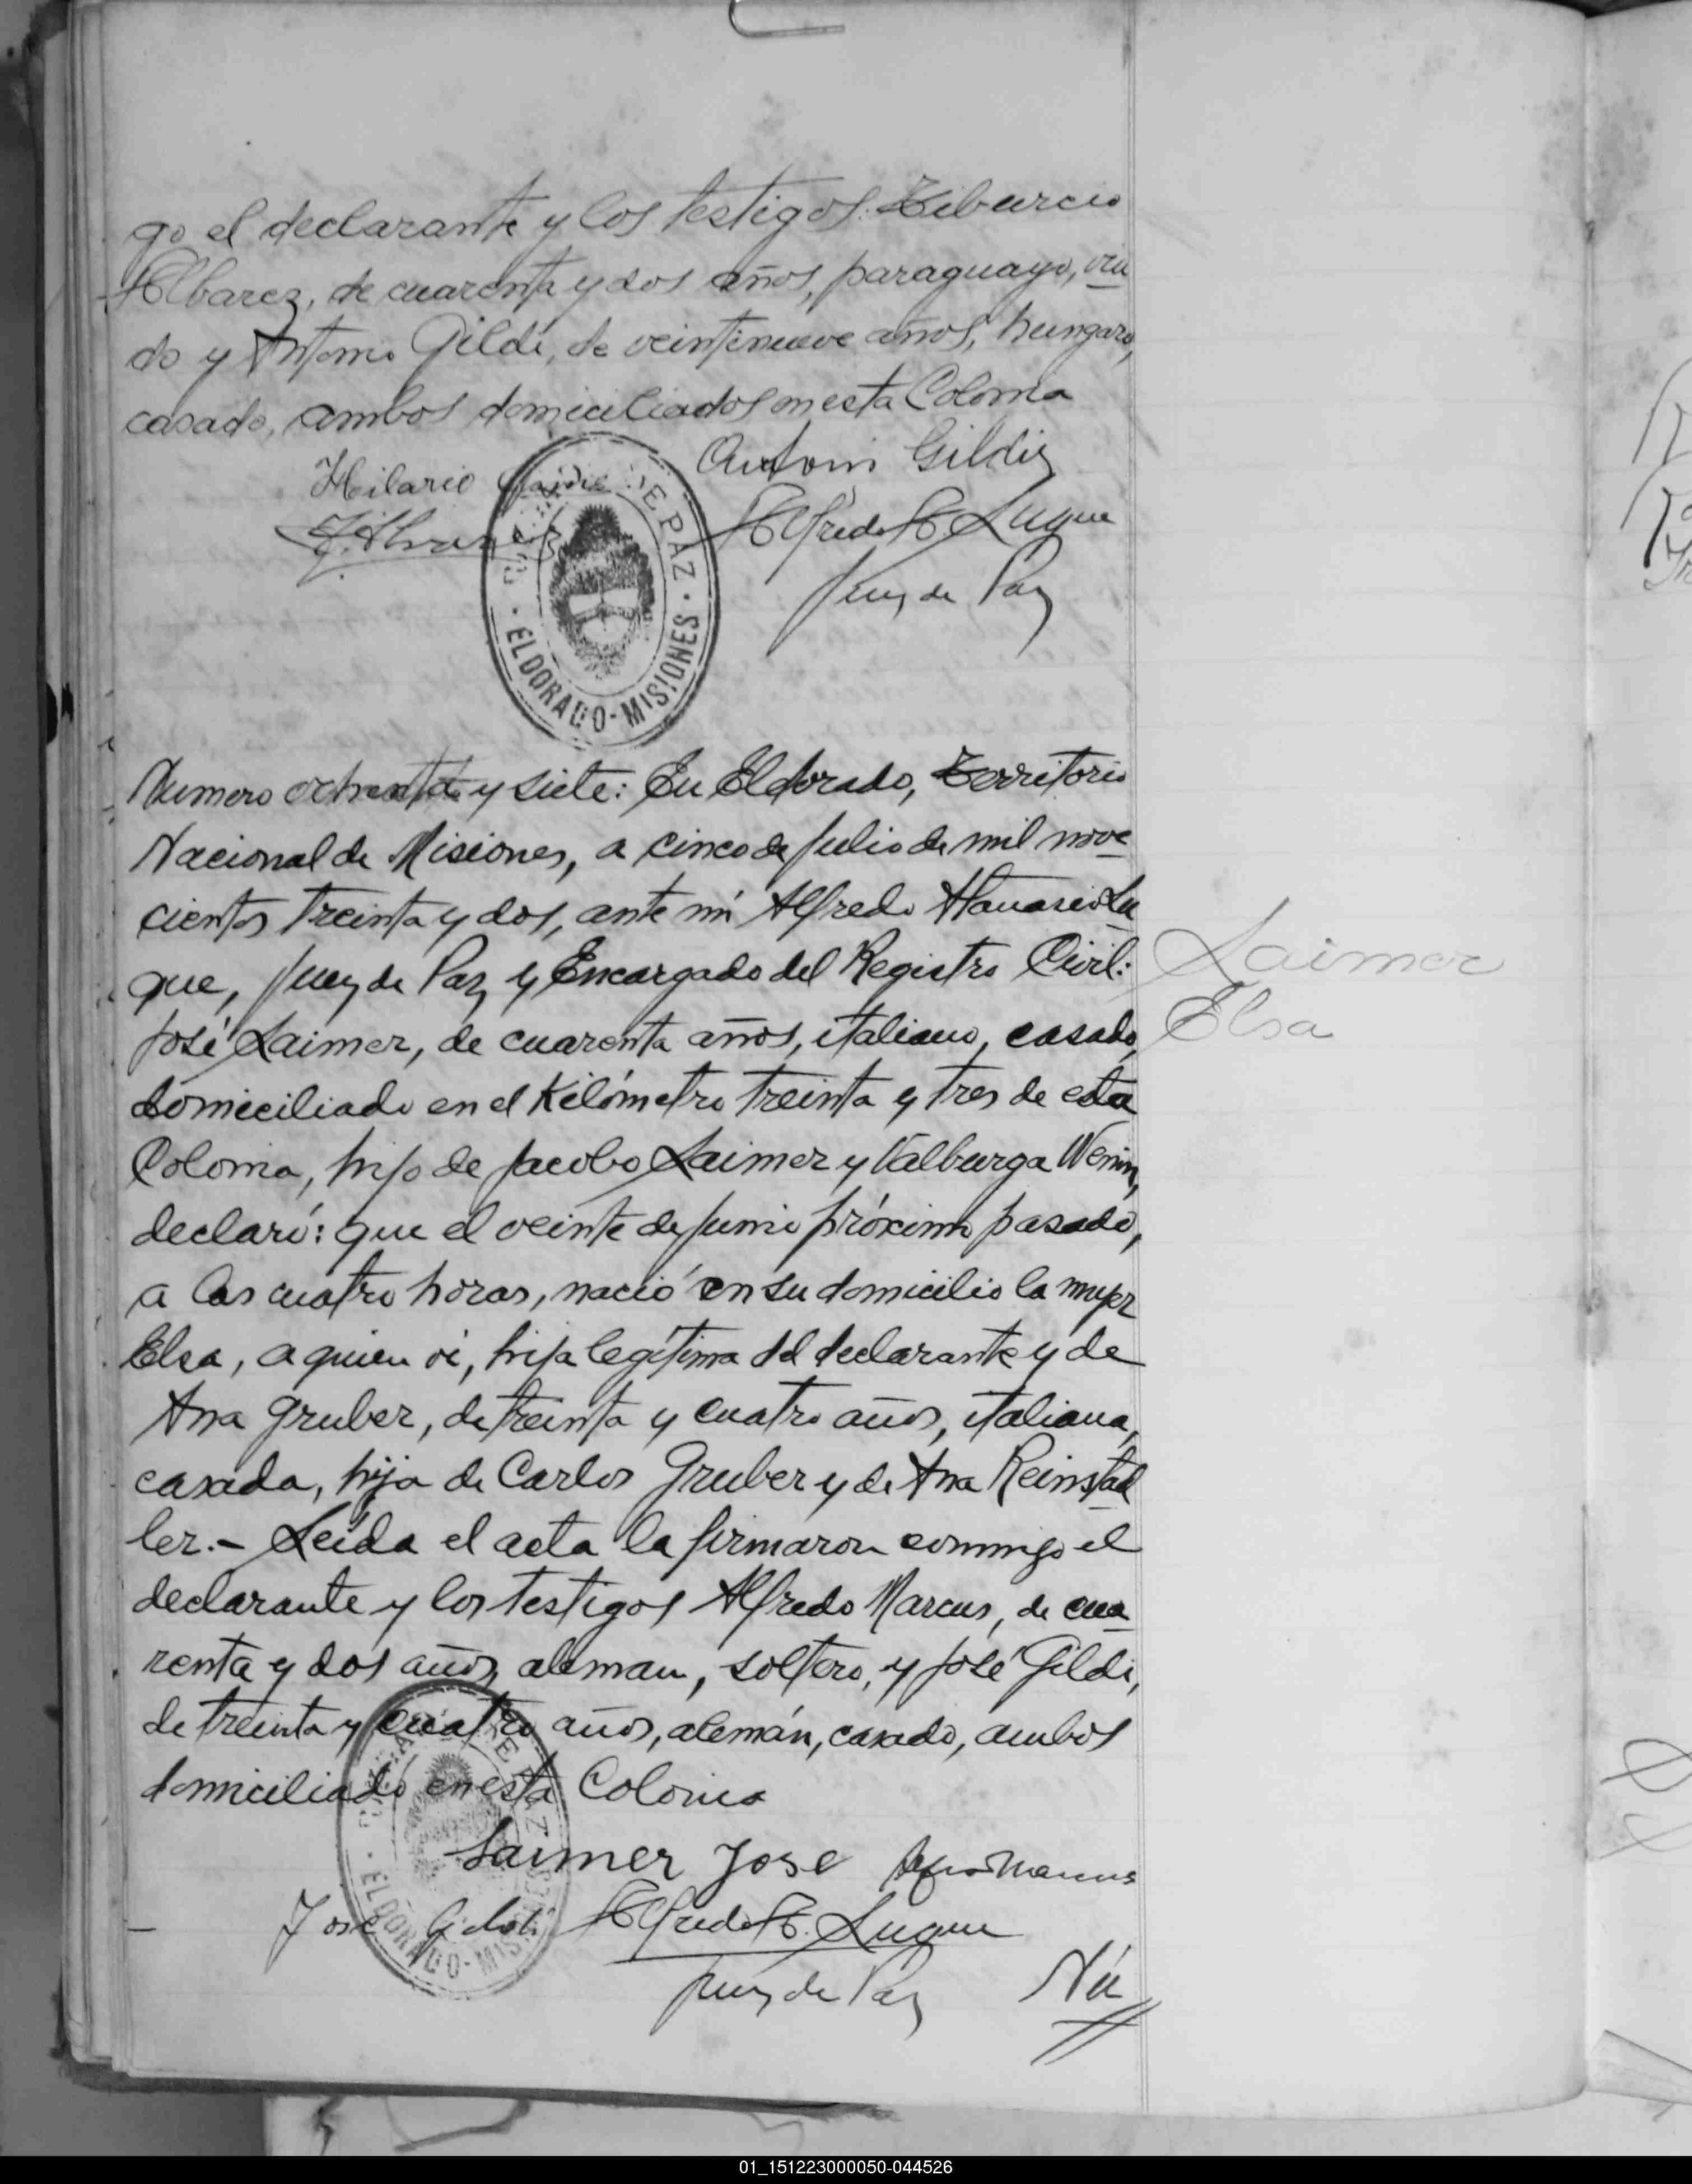 go el declarante y los testigos: Tiburcio
Albarez, de cuarenta y dos años, paraguayo, viu
do y Antonio Gildi, de veintinueve años, hungaro,
casado, ambos domiciliados en esta Colonia
Hilario
Antoni Gildi
Alfredo A. Luque
Juez de Paz
DE PAZ
· ELDORADO - MISIONES ·
Numero ochenta y siete: En Eldorado, Territorio
Nacional de Misiones, a cinco de Julio de mil nove
cientos treinta y dos, ante mí Alfredo Atanasio Lu
que, Juez de Paz y Encargado del Registro Civil:
José Laimer, de cuarenta años, italiano, casado,
domiciliado en el Kilómetro treinta y tres de esta
Colonia, hijo de Jacobo Laimer y Valburga Wenin,
declaró: que el veinte de Junio próximo pasado,
a las cuatro horas, nació en su domicilio la mujer
Elsa, a quien ví, hija legítima del declarante y de
Ana Gruber, de treinta y cuatro años, italiana,
casada, hija de Carlos Gruber y de Ana Reinstad
ler.- Leída el acta la firmaron conmigo el
declarante y los testigos Alfredo Marcus, de cua
renta y dos años, aleman, soltero, y José Gildi,
de treinta y cuatro años, alemán, casado, ambos
domiciliado en esta Colonia
Laimer Jose
José Gildi Alfredo A. Luque
Juez de Paz
ELDORADO - MIS
Laimer
Elsa
01_151223000050-044526